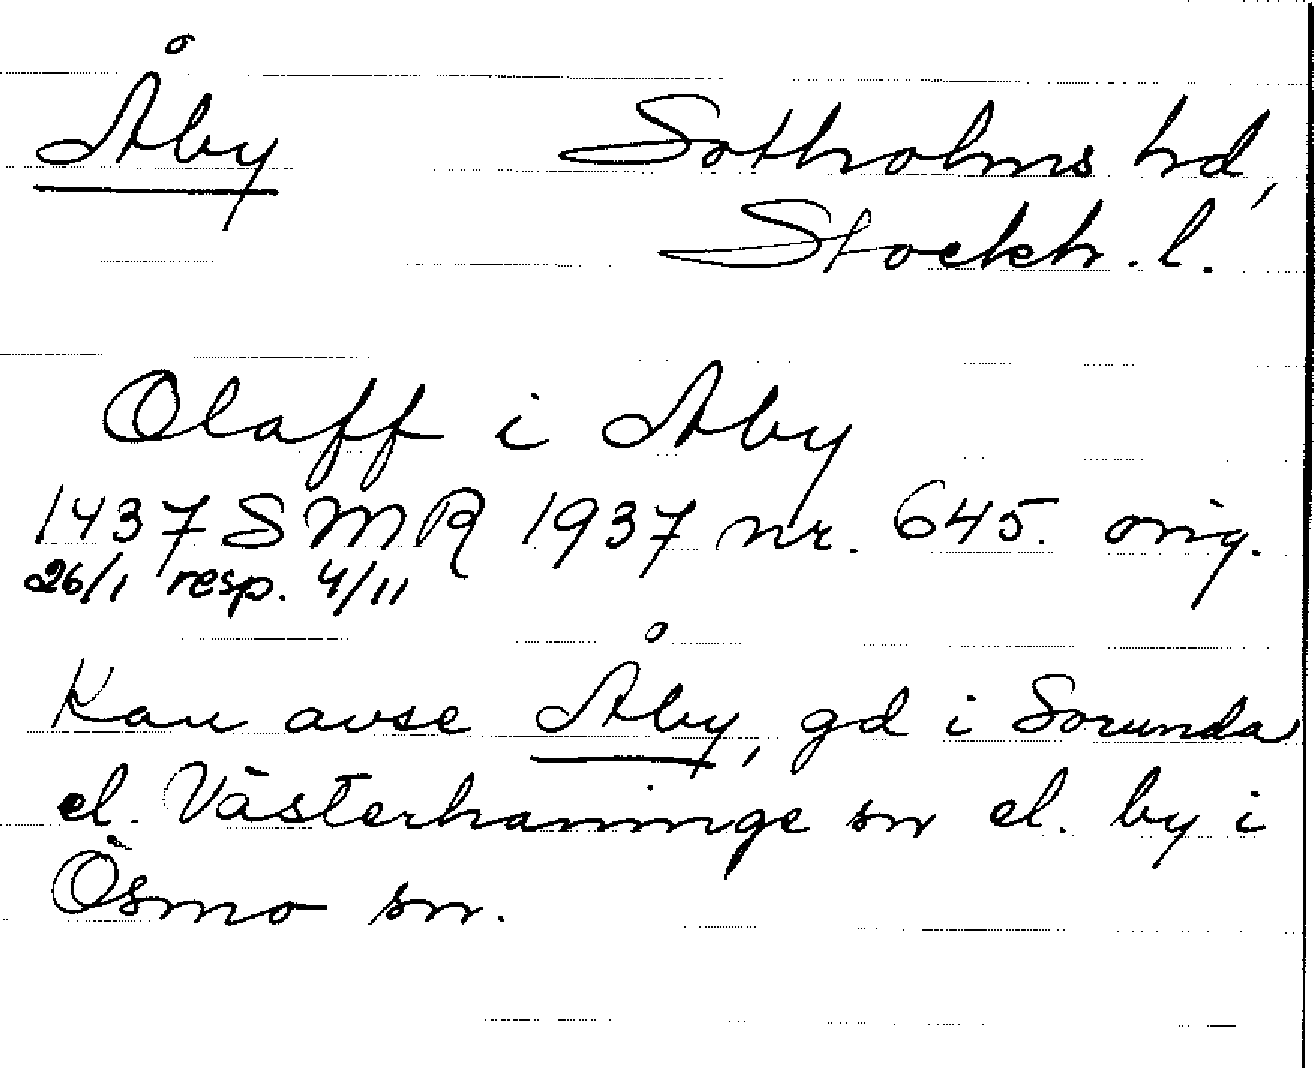 Åby Sotholms hd,
Stockh. l.
Olaff i Aby
1437 SMR 1937 nr. 645. orig.
26/1 resp. 4/11
Kan avse Åby, gd i Sorunda
el. Västerhaninge sn el. by i
Ösmo sn.